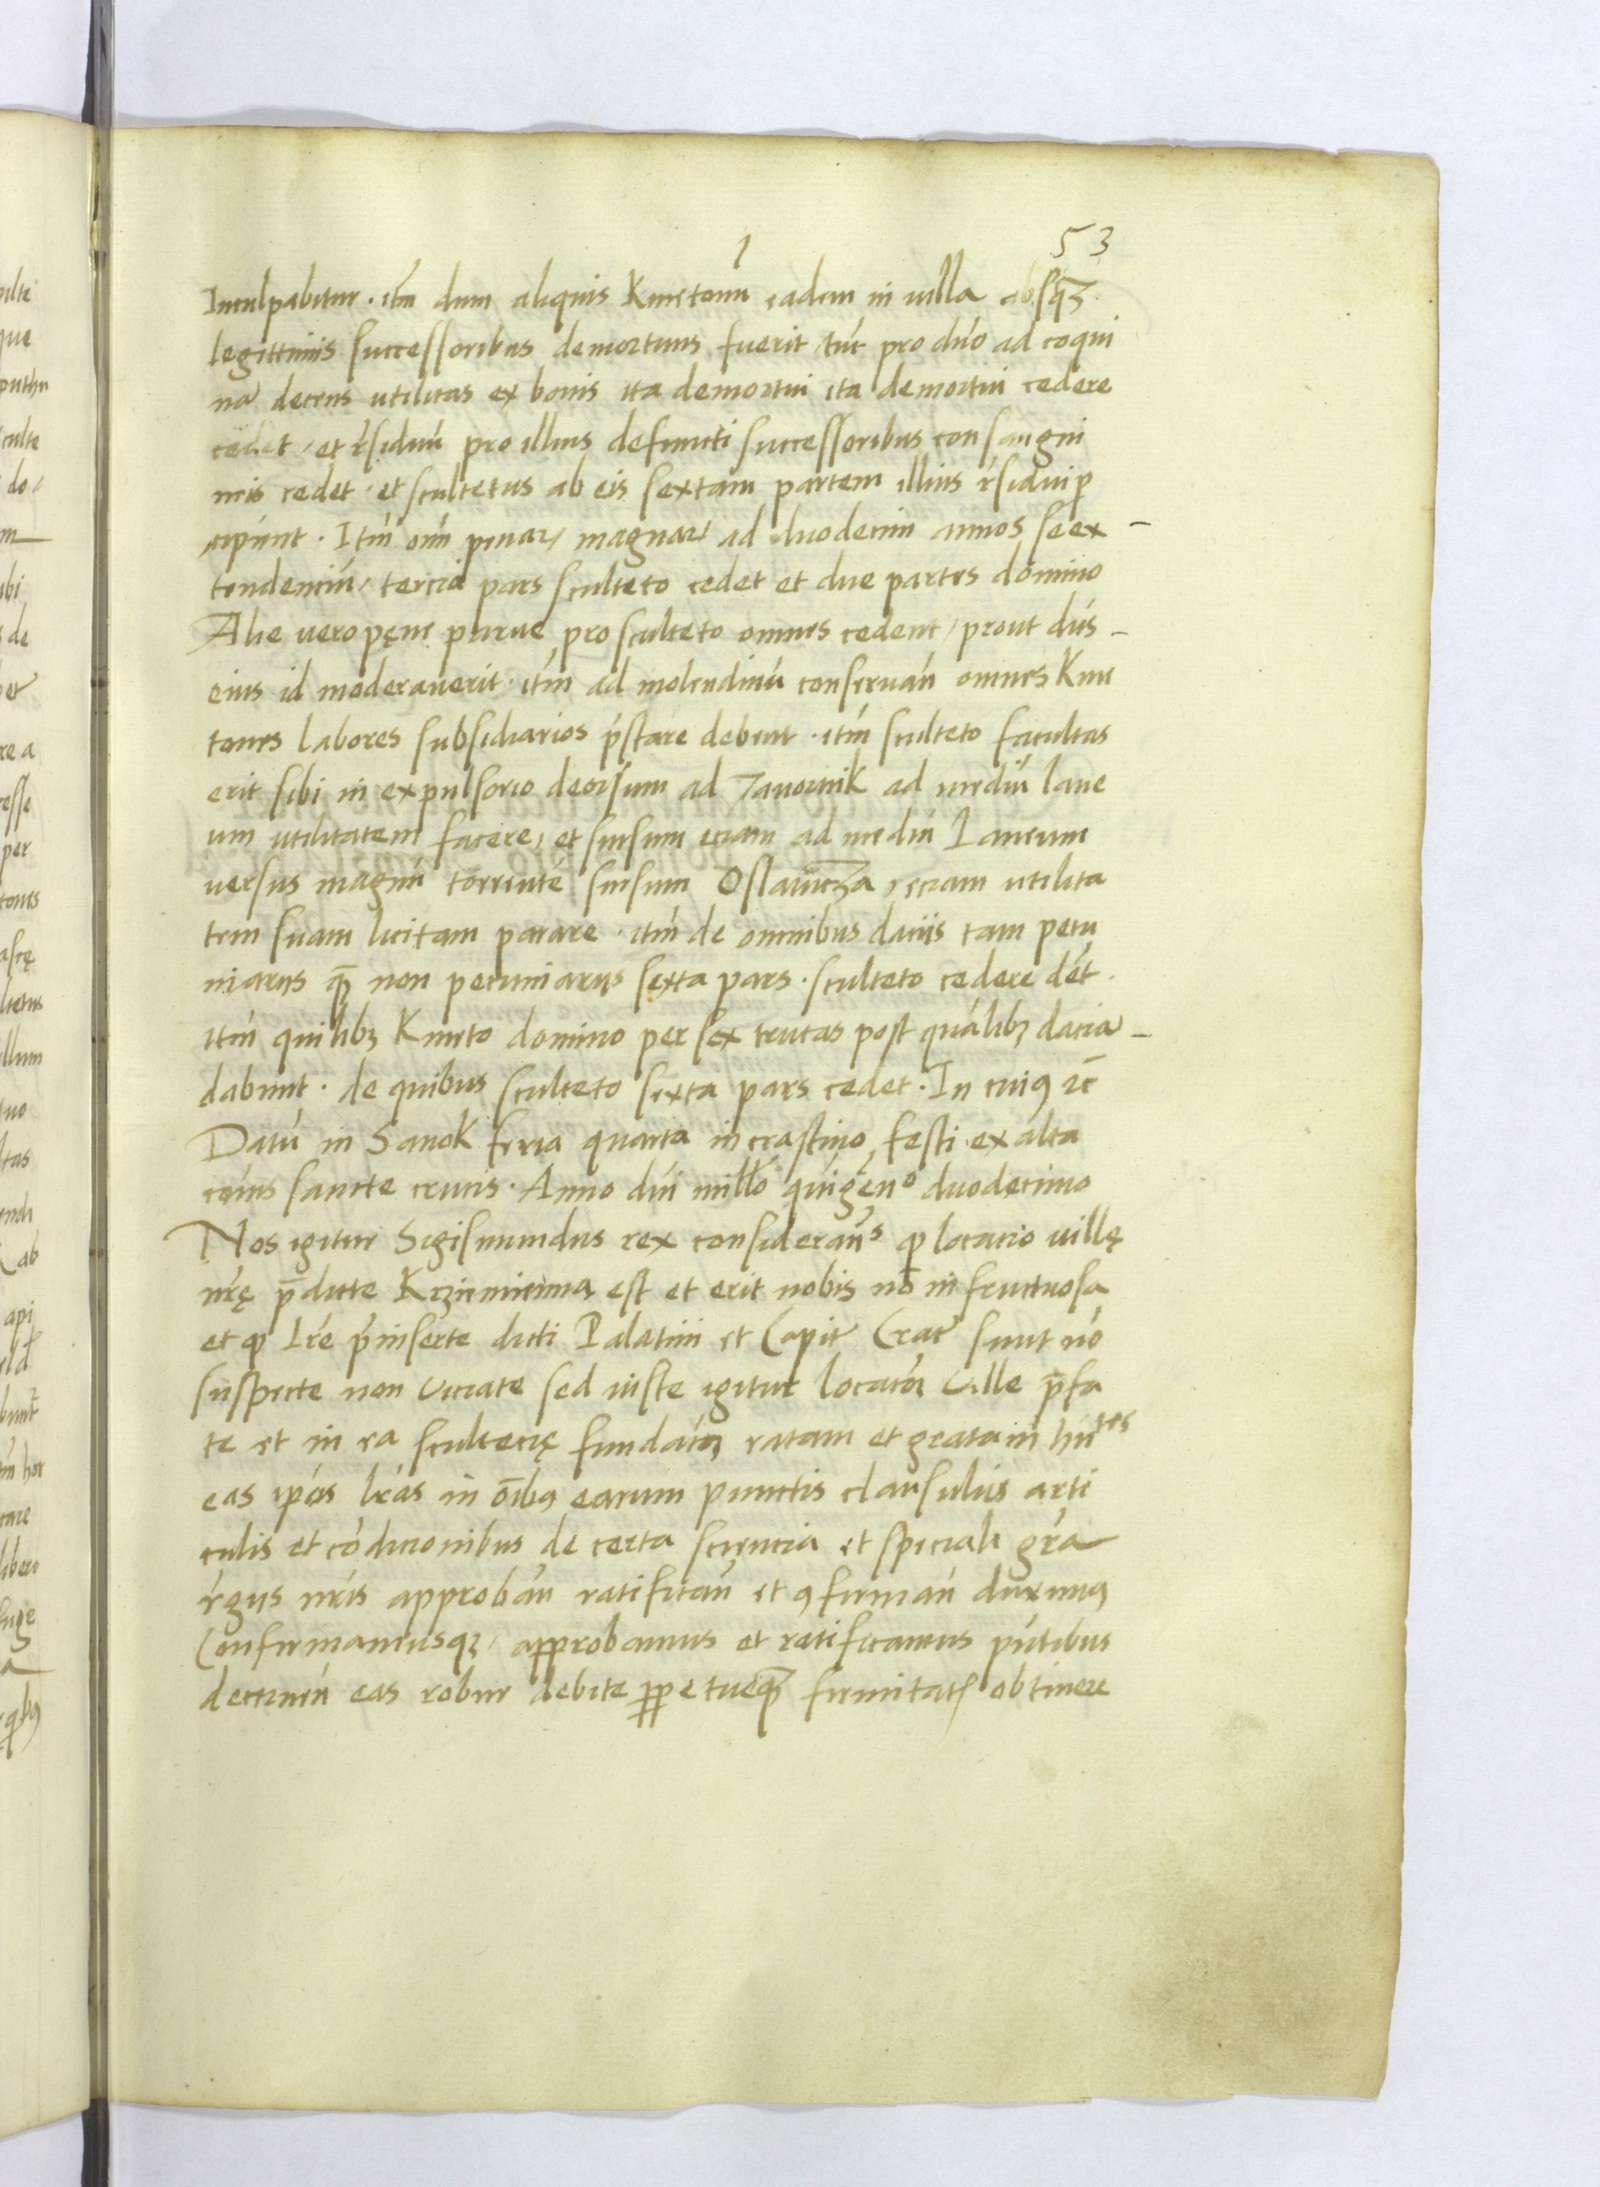 1 53
Inculpabitur · itm̄ dum aliquis Kmetonū eadem in uilla absq꜄
legittimis successoribus demortuus fuerit tūc pro duo ad coqui
nā decens utilitas ex bonis ita demortui ita demortui cedere
cedet / et r̄siduū pro illius defuncti successoribus consangui
neis cedet · et scultetus ab eis sextam partem illius r̄sidui p
cipiunt · Itm̄ om̄ penar / magnar ad duodecim annos se ex –
tendenciū / tercia pars sculteto cedet et due partes domino
Alie uero pęne parue pro sculteto omnes cedent / prout dn̄s –
eius id moderauerit · itm̄ ad molendinū conseruan̄ omnes Kme
tones labores subsidiarios p̄stare debent · itm̄ sculteto facultas
erit sibi in expulsorio deorsum ad Jauornik ad mediū lane
um utilitatem facere / et sursum eciam ad mediū Laneum
uersus magnū torrentē sursum Oslawicza / eciam utilita
tem suam licitam parare · itm̄ de omnibus daciis tam pecu
niariis q̄ꝫ non pecuniariis sexta pars · sculteto cedere dēt ·
itm̄ quilibꝫ Kmeto domino per sex trutas post quālibꝫ dacia –
dabunt · de quibus sculteto sexta pars cedet · In cuiꝯ ꝛc̄
Datū in Sanok feria quarta in crastino festi exalta
cōnis sancte crucis · Anno dn̄i millo quīgēn° duodecimo
Nos igitur Sigismundus rex consideran̄s qꝫ locacio uillę
nr̄ę p̄dicte Krziemienna est et erit nobis nō infructuosa
et qꝫ lr̄e p̄inserte dicti Palatini et Capit Crac̄ sunt nō
suspecte non viciate sed iuste igitur locacōꝫ ville p̄fa
te et in ea scultecię fundacōꝫ ratam et gratam hn̄tes
eas ip̄as lr̄as in ōibꝯ earum punctis clausuliis arti
culis et cōdicionibus de certa sciencia et speciali gr̄a
r̄giis nr̄is approban̄ ratifican̄ et ꝯfirman̄ duximꝯ
Confirmamusqꝫ / approbamus et ratificamus pn̄tibus
decernen̄ eas robur debite ꝑꝑetueqꝫ firmitatꝭ obtinere